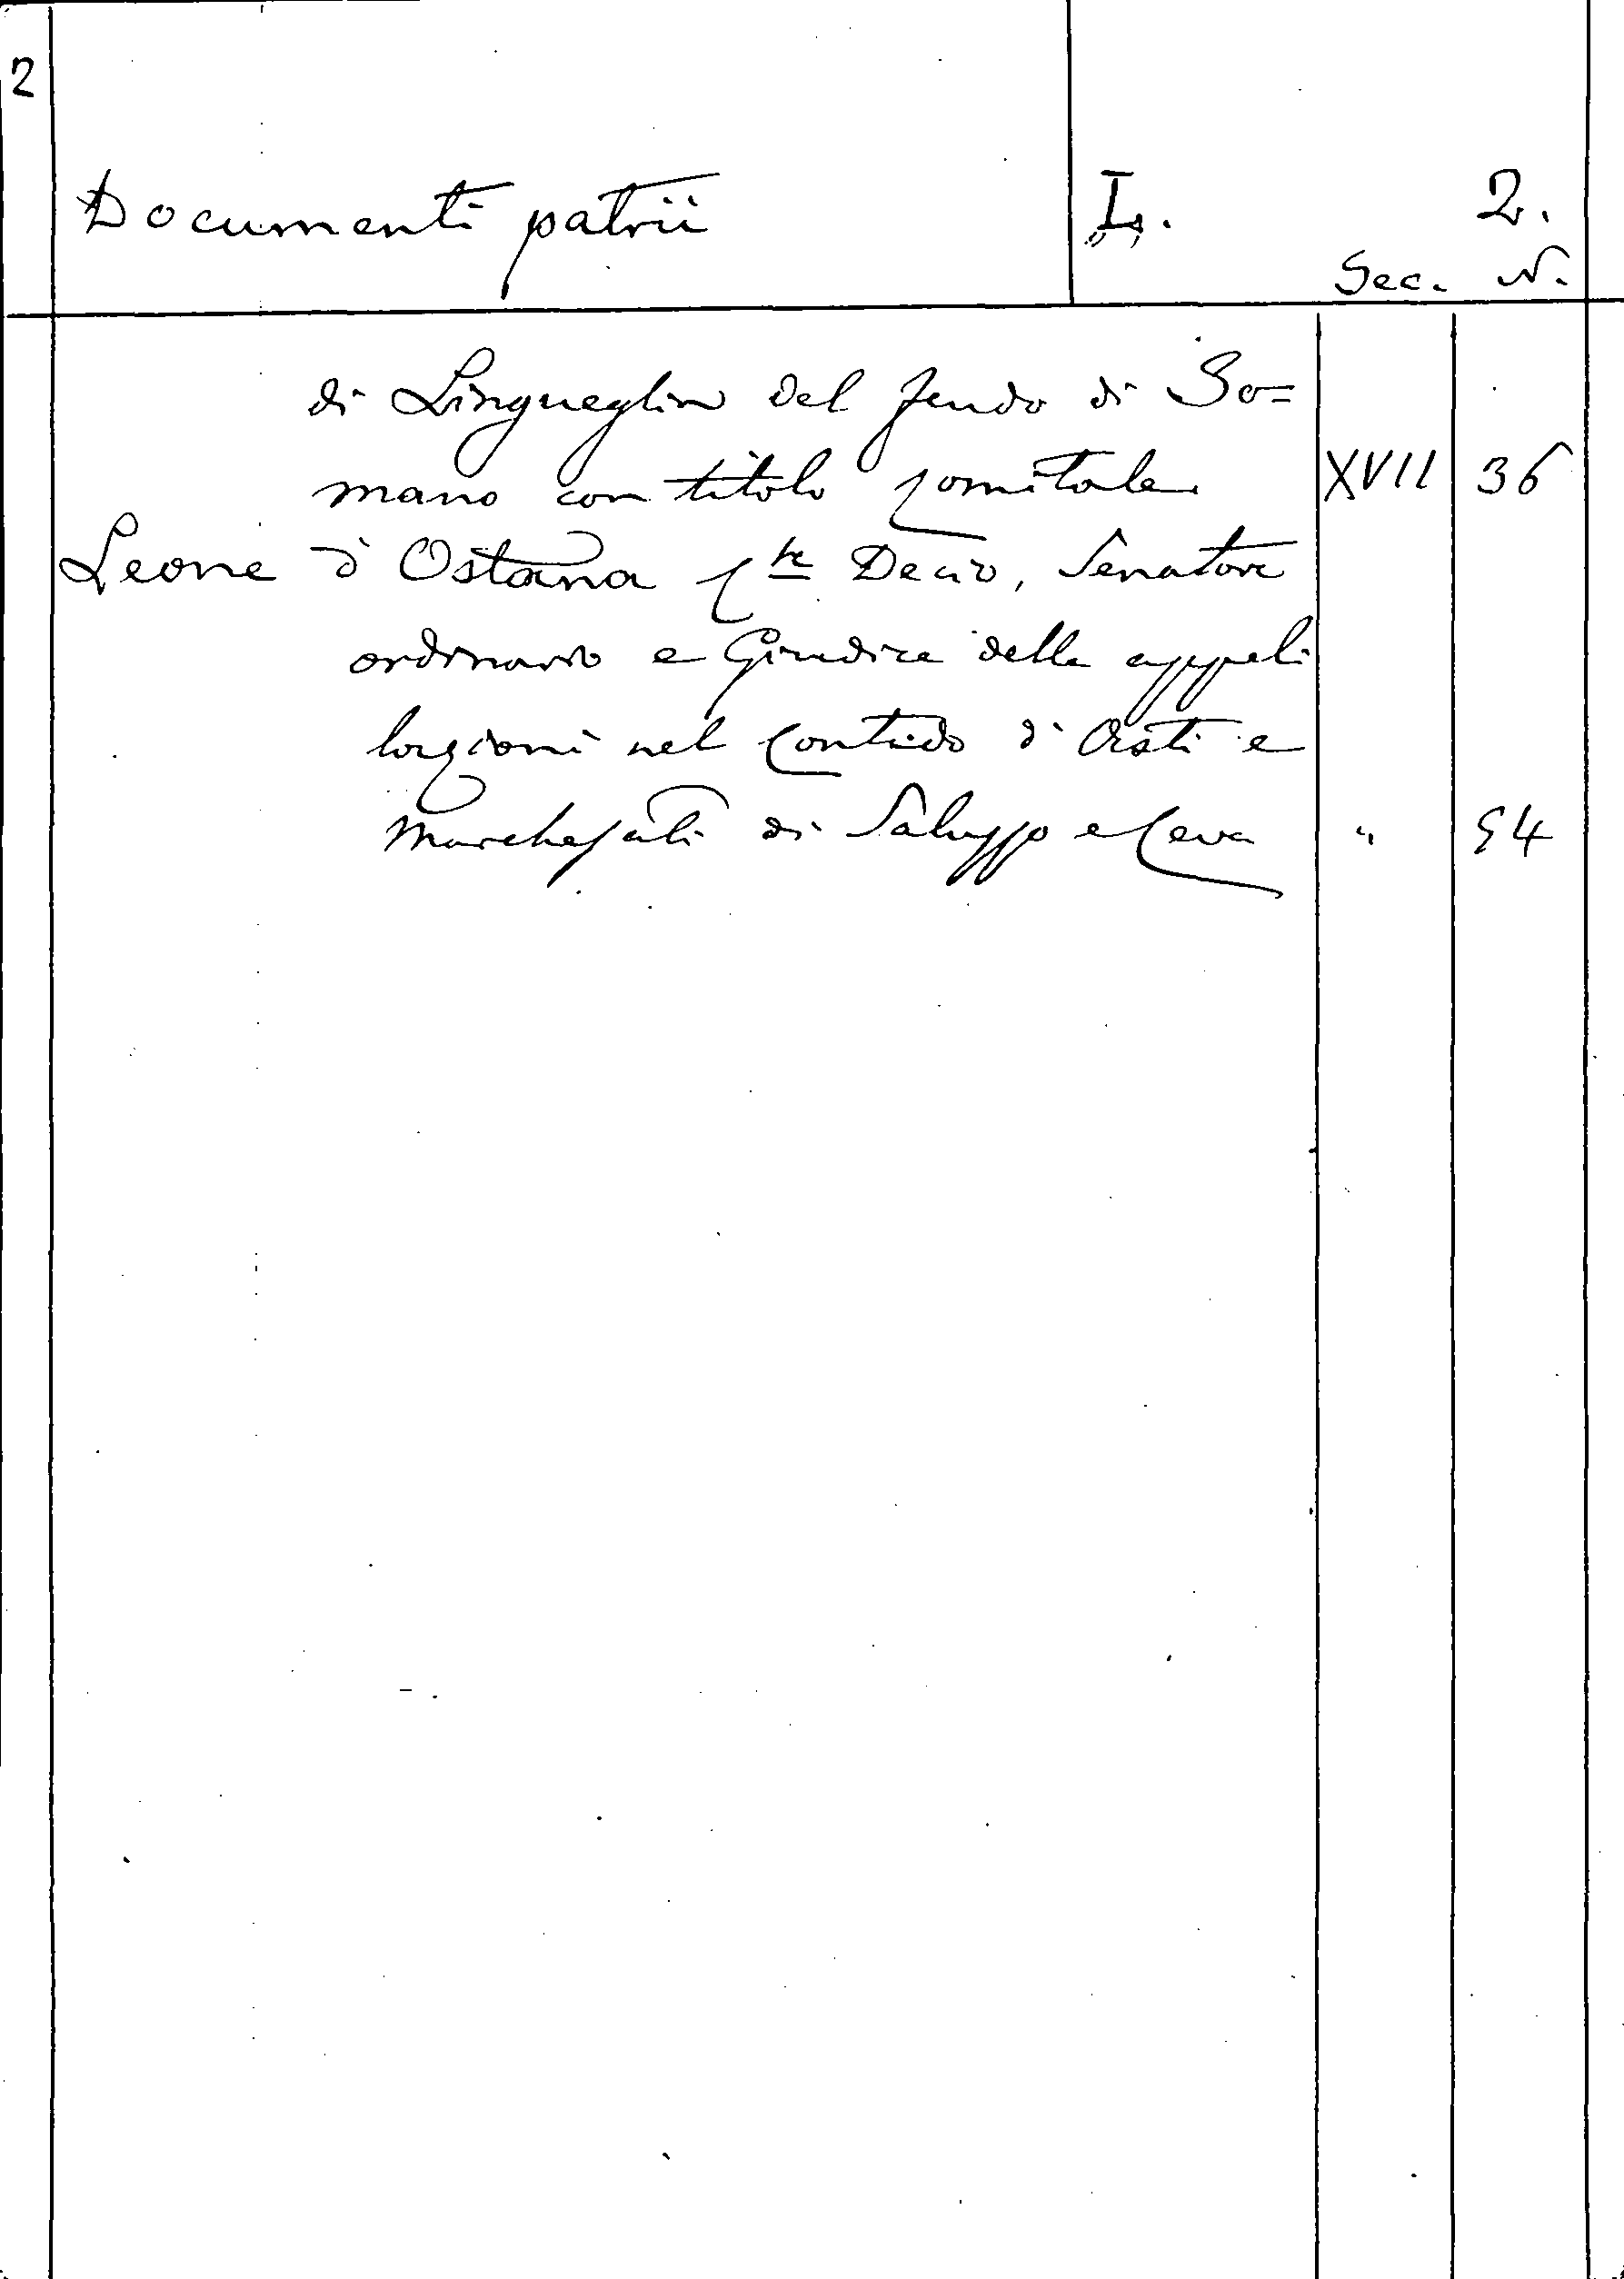 2
Documenti patrii L. 2.
Sec. N.
di Lingueglia del feudo di Bo=
mano con titolo comitale. XVII 36
Leone d'Ostana Cte Decio, Senatore
ordinario e Giudice delle appel
lazioni nel Contado d'Asti e
Marchesati di Saluzzo e Ceva " 54